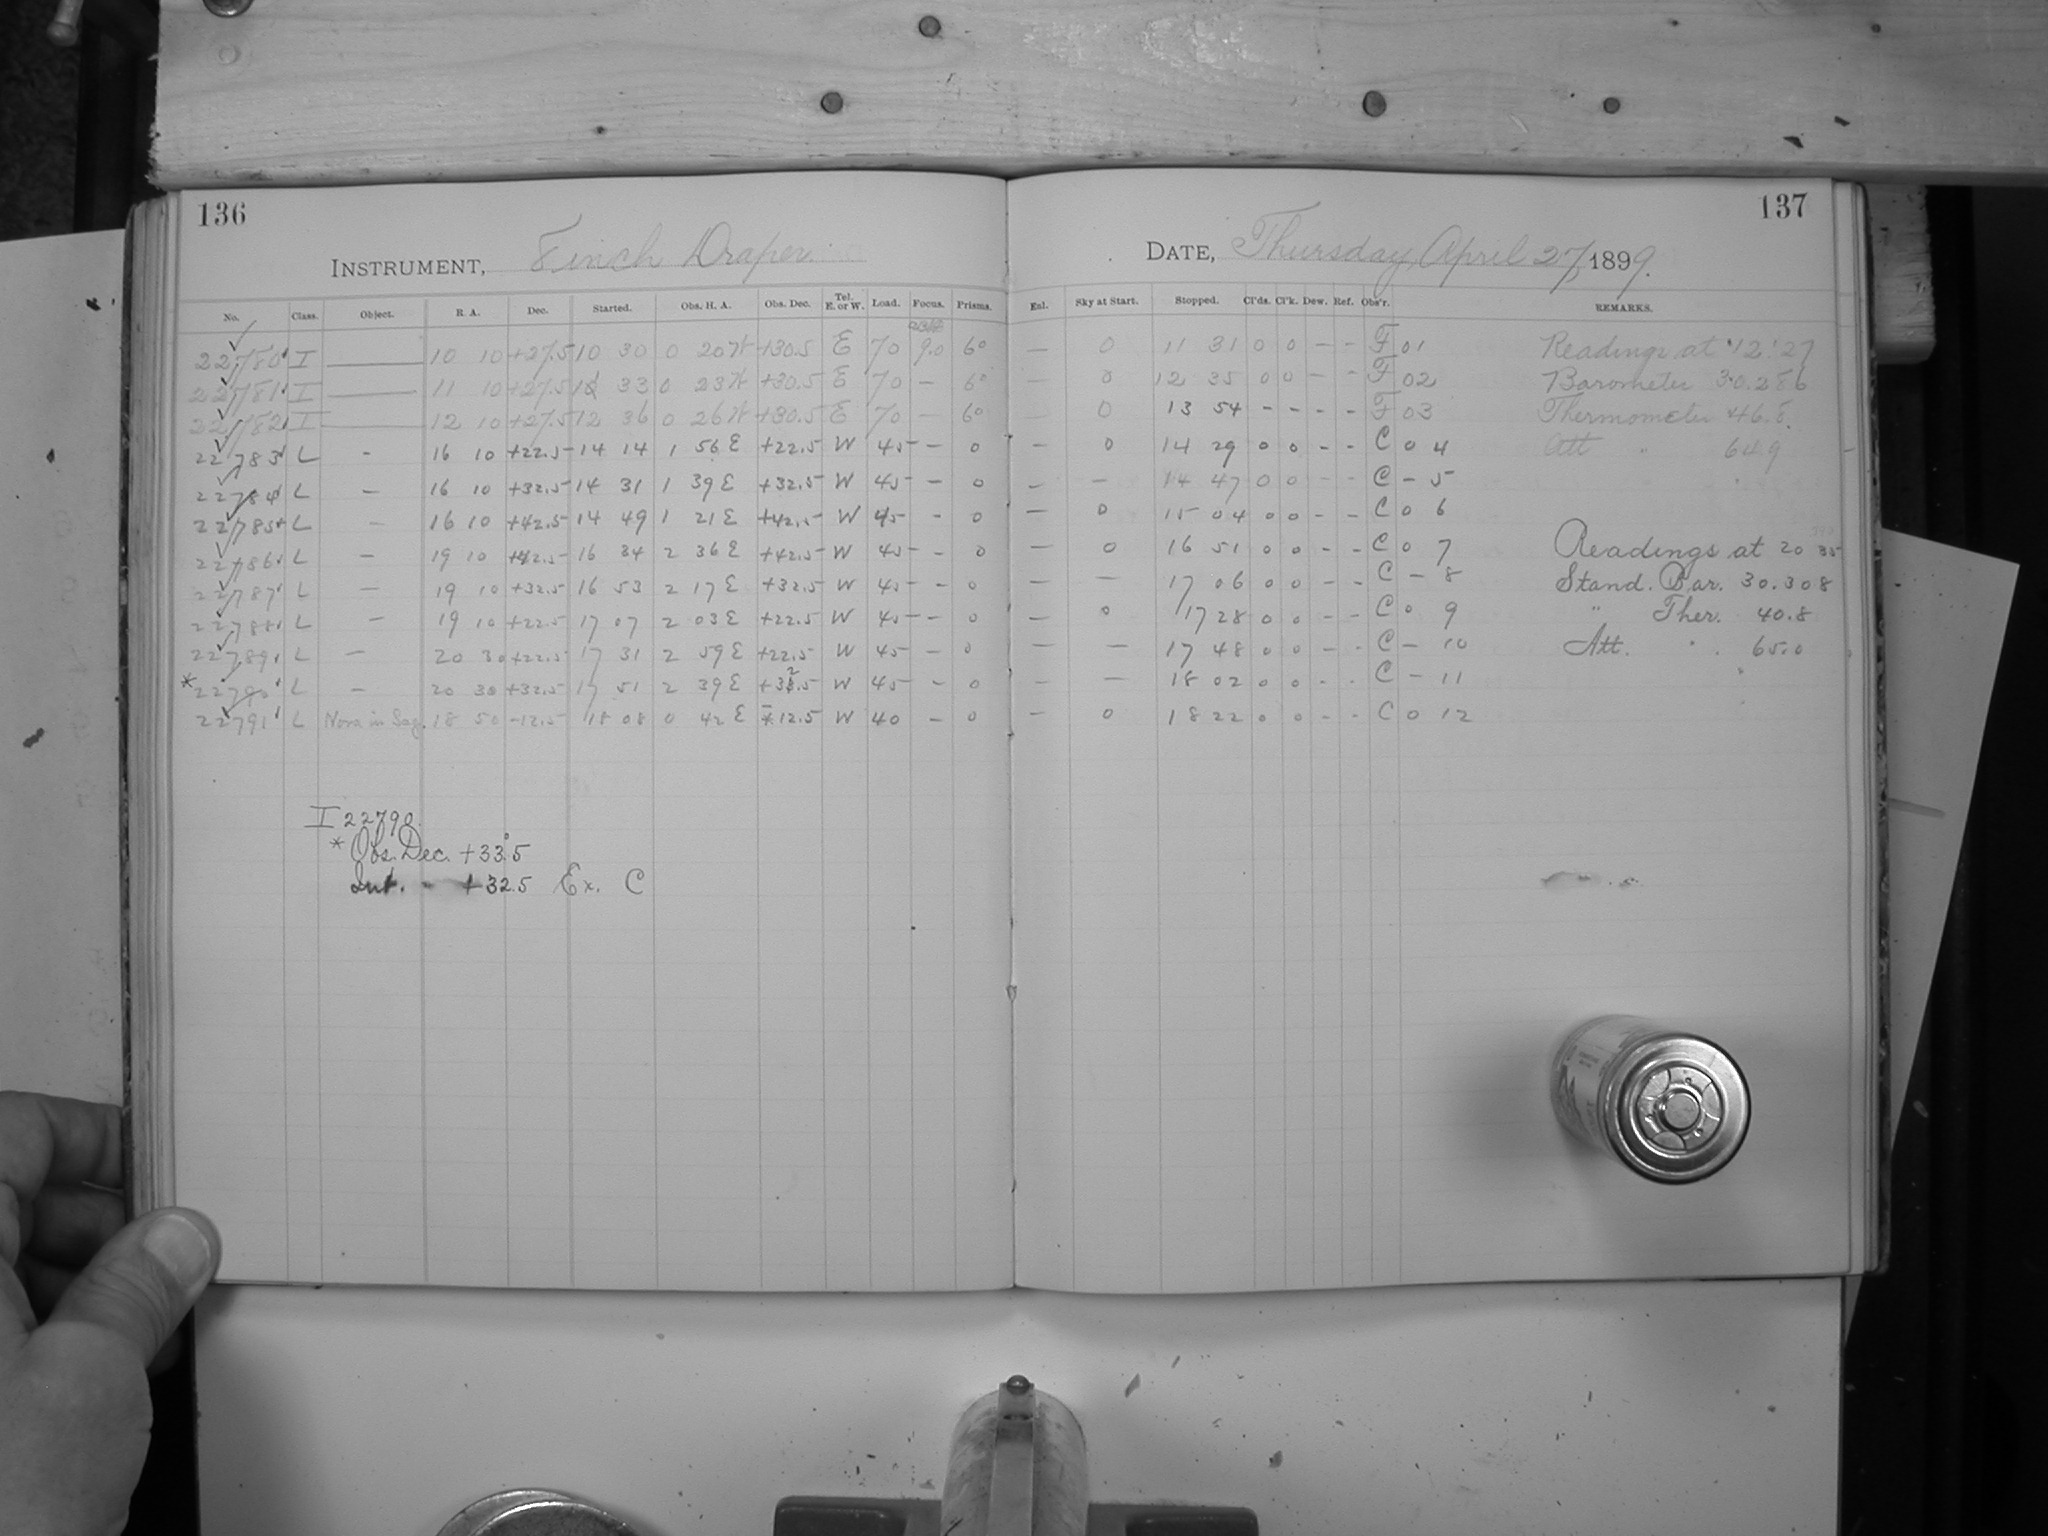 136
137
INSTRUMENT, 8 inch Draper.
DATE, Thursday, April 27, 1899.
No. Class. Object. R. A. Dec. Started. Obs. H. A. Obs. Dec. Tel. E. or W. Load. Focus. Prisms. Enl. Sky at Start. Stopped. Cl'ds. Cl'k. Dew. Ref. Obs'r. REMARKS.
22780 I — 10 10 +27.5 10 30 0 20 W +30.5 E 70 9.0 60 — 0 11 31 0 0 - - F 01 Readings at 12:27
22781 I — 11 10 +27.5 33 0 23 W +30.5 E 70 — 60 — 0 12 35 0 0 - - F 02 Barometer 30.286
22782 I — 12 10 +27.5 12 36 0 26 W +30.5 E 70 — 60 — 0 13 54 - - - - F 03 Thermometer 46.8
22783 L - 16 10 +22.5 14 14 1 56 E +22.5 W 45 — 0 — 0 14 29 0 0 - - C 0 4 Att " 64.9
22784 L — 16 10 +32.5 14 31 1 39 E +32.5 W 45 - 0 — — 14 47 0 0 - - C - 5
22785 L — 16 10 +42.5 14 49 1 21 E +42.5 W 45 - 0 — 0 15 04 0 0 - - C 0 6
22786 L — 19 10 +42.5 16 34 2 36 E +42.5 W 45 - 0 — 0 16 51 0 0 - - C 0 7 Readings at 20 35
22787 L — 19 10 +32.5 16 53 2 17 E +32.5 W 45 - 0 — — 17 06 0 0 - - C - 8 Stand. Bar. 30.308
22788 L — 19 10 +22.5 17 07 2 03 E +22.5 W 45 — 0 — 0 17 28 0 0 - - C 0 9 " Ther. 40.8
22789 L — 20 30 +22.5 17 31 2 59 E +22.5 W 45 - 0 — — 17 48 0 0 - - C - 10 Att. " 65.0
* 22790 L — 20 30 +32.5 17 51 2 39 E +32.5 W 45 - 0 — — 18 02 0 0 - - C - 11
22791 L Nova in Sag. 18 50 -12.5 18 08 0 42 E -12.5 W 40 - 0 — 0 18 22 0 0 - - C 0 12
I 22790.
* Obs. Dec. +33°.5
Int. - +32.5 Ex. C